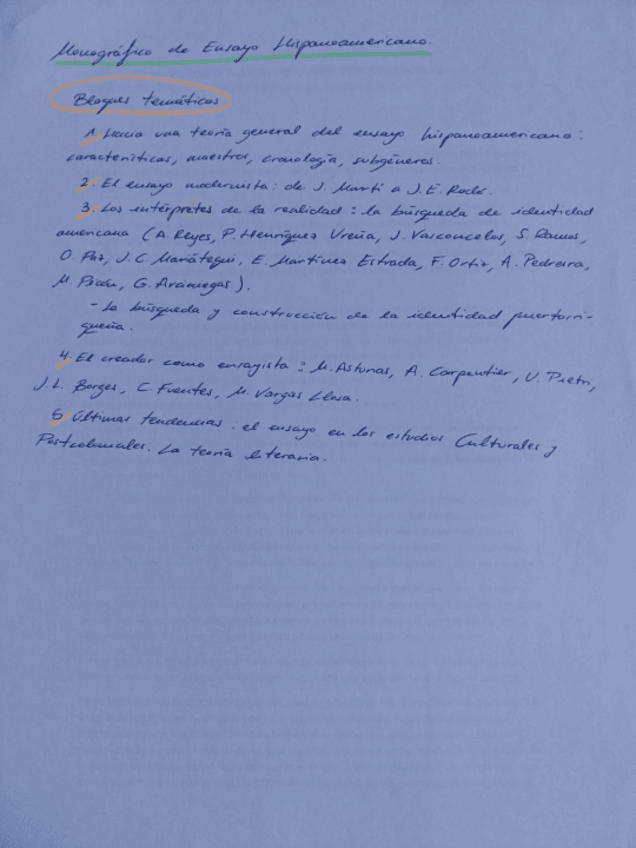 Monográfico de Ensayo Hispanoamericano.
Bloques temáticos
1. Hacia una teoría general del ensayo hispanoamericano:
características, maestros, cronología, subgéneros.
2. El ensayo modernista: de J. Martí a J. E. Rodó.
3. Los intérpretes de la realidad: la búsqueda de identidad
americana (A. Reyes, P. Henríquez Ureña, J. Vasconcelos, S. Ramos,
O. Paz, J. C. Mariátegui, E. Martínez Estrada, F. Ortiz, A. Pedreira,
M. Picón, G. Araniegas).
- La búsqueda y construcción de la identidad puertorri-
queña.
4. El creador como ensayista: M. Asturias, A. Carpentier, U. Pietri,
J. L. Borges, C. Fuentes, M. Vargas Llosa.
5. Últimas tendencias: el ensayo en los estudios Culturales y
Postcoloniales. La teoría literaria.